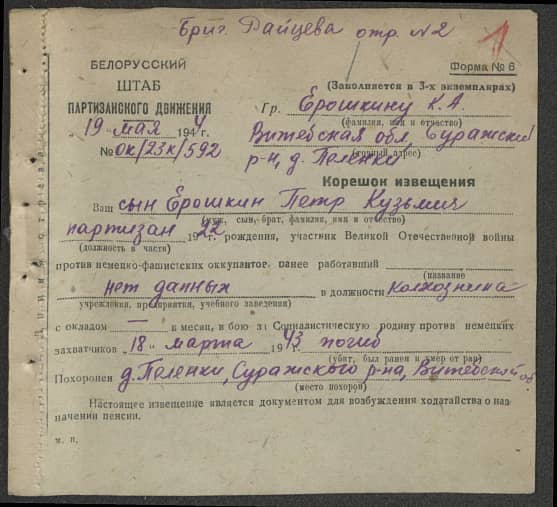 Бриг. Райцева отр. №2
1
БЕЛОРУССКИЙ
ШТАБ
ПАРТИЗАНСКОГО ДВИЖЕНИЯ
„19" мая 1944 г.
№ ок/23к/592
Форма № 6
(Заполняется в 3-х экземплярах)
Гр. Ерошкину К. А.
(фамилия, имя и отчество)
Витебская обл, Суражский
р-н, д. Пеленки
(точный адрес)
Корешок извещения
Ваш сын Ерошкин Петр Кузьмич
(муж, сын, брат, фамилия, имя и отчество)
партизан 1922 г. рождения, участник Великой Отечественной войны
(должность и часть)
против немецко-фашистских оккупантов, ранее работавший
(название
нет данных в должности колхозника
учреждения, предприятия, учебного заведения)
с окладом — в месяц, в бою за Социалистическую родину против немецких
захватчиков 18 марта 1943 погиб
(убит, был ранен и умер от ран)
Похоронен д. Пеленки, Суражского р-на, Витебской об.
(место похорон)
Настоящее извещение является документом для возбуждения ходатайства о наз-
начении пенсии.
м. п.